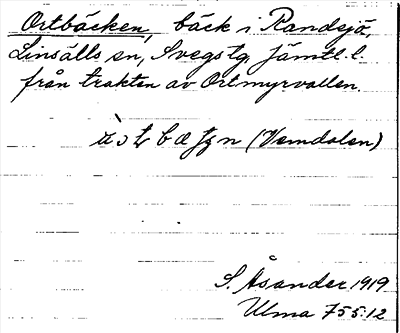 Ortbäcken, bäck i Randsjö,
Linsälls sn, Svegs tg. Jämtl. l.
från trakten av Ortmyrvallen.
(Vemdalen)
S. Åsander 1919
Ulma 755:12